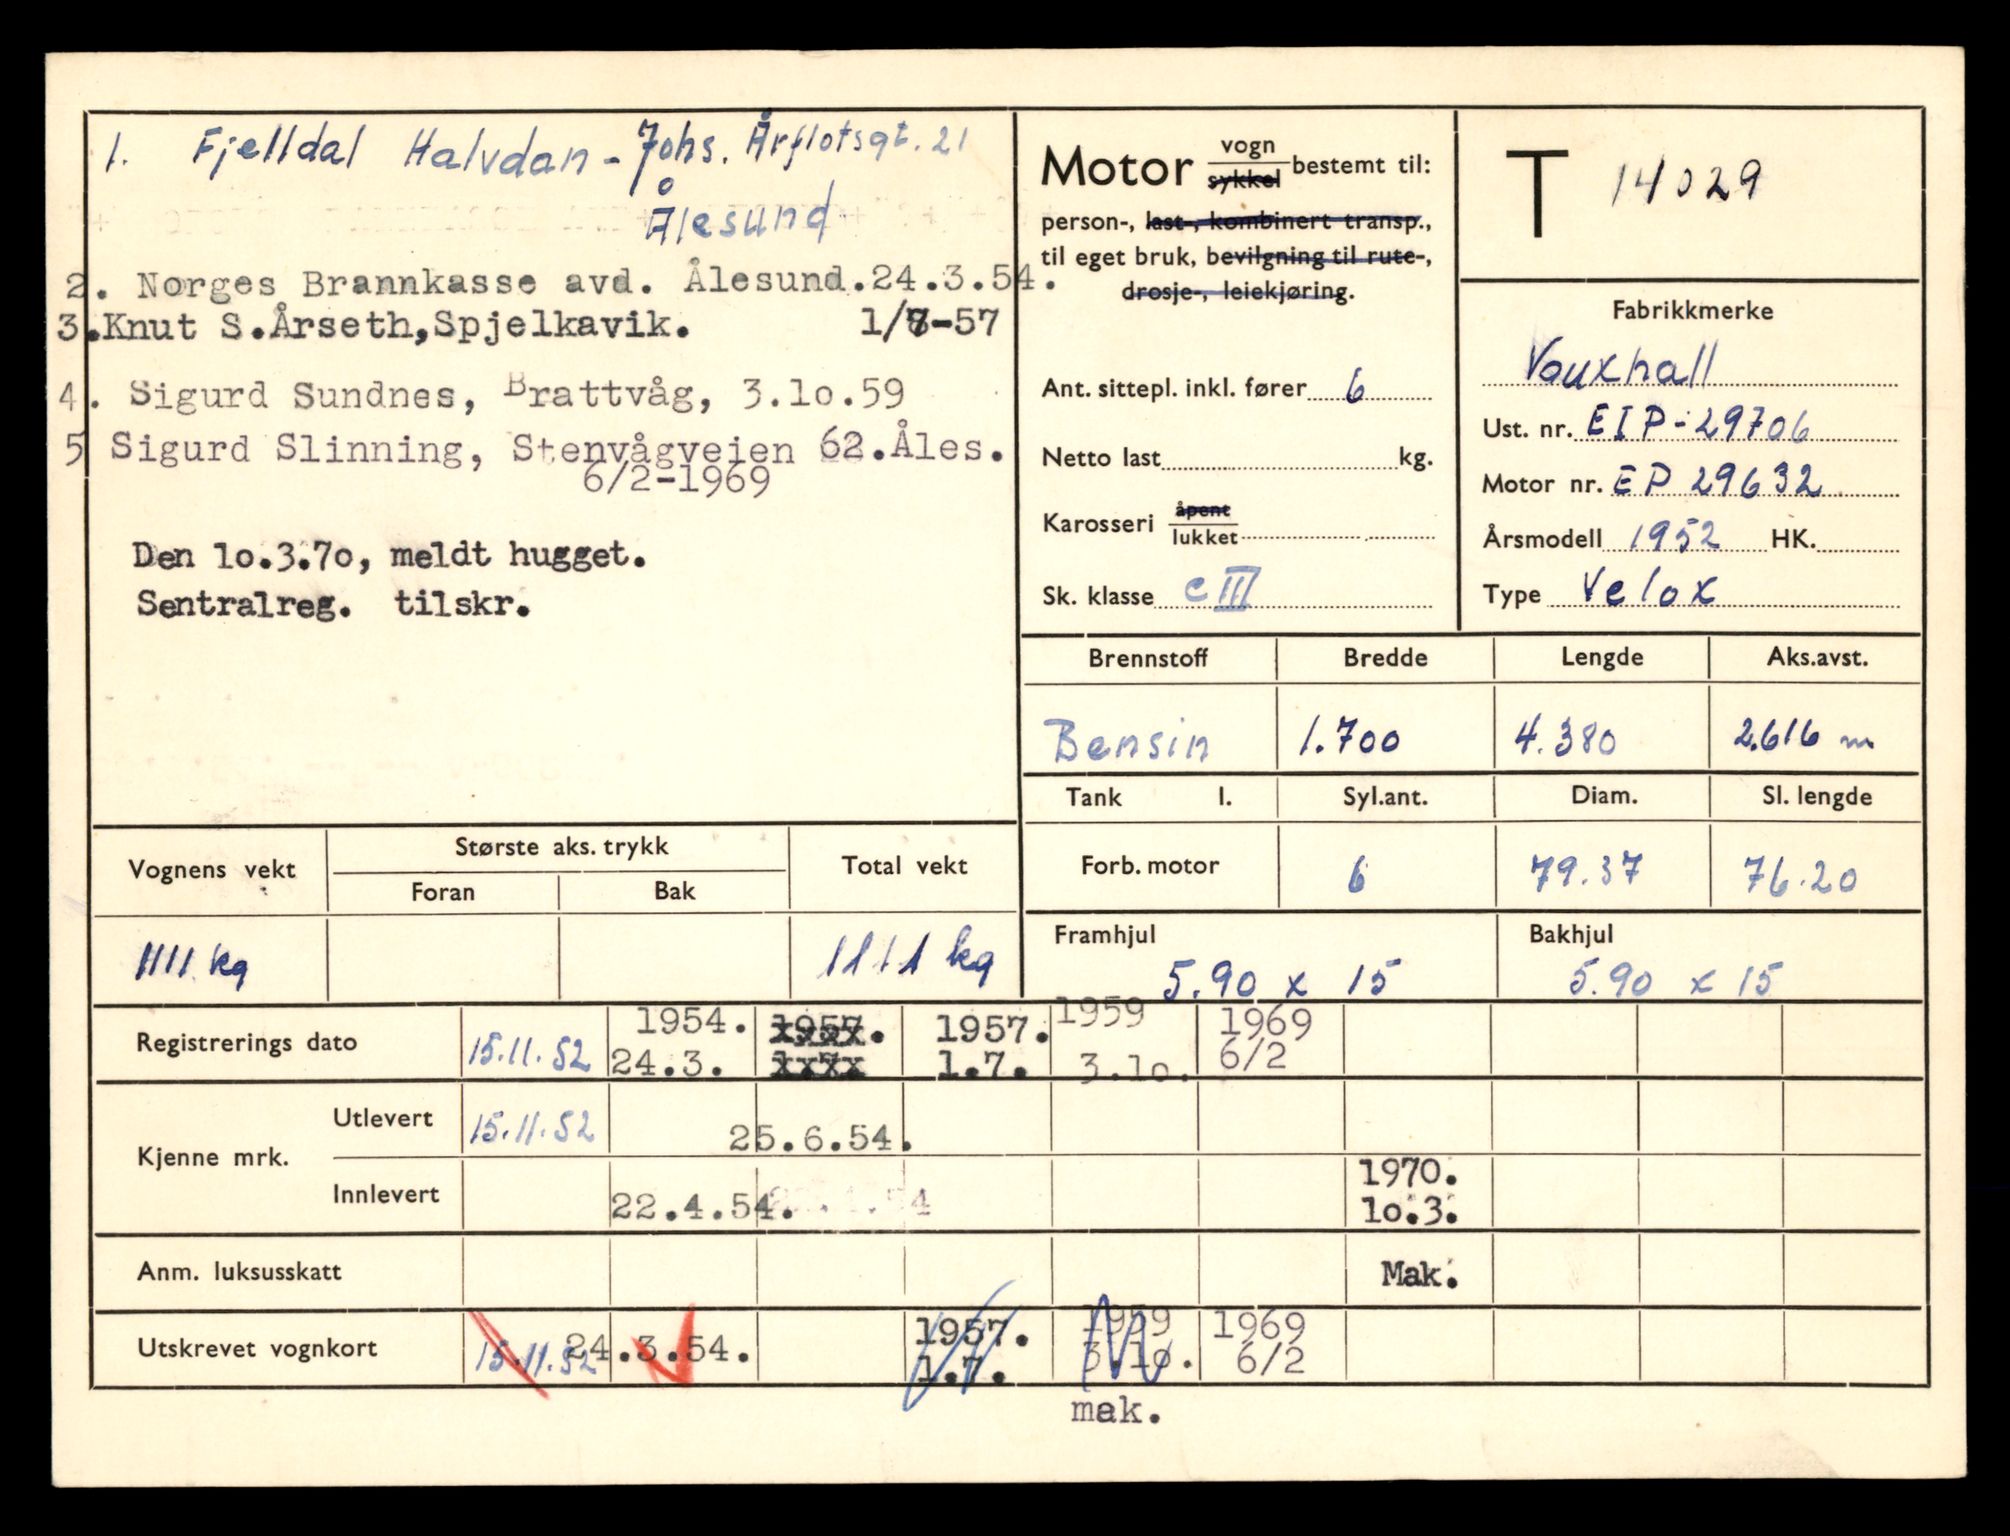 1. Fjelldal Halvdan - Johs. Årflotsgt. 21
Ålesund
2. Norges Brannkasse avd. Ålesund. 24.3.54.
3. Knut S. Årseth, Spjelkavik. 1/7-57
4. Sigurd Sundnes, Brattvåg, 3.10.59
5 Sigurd Slinning, Stenvågveien 62. Åles.
6/2-1969
Den 1o.3.7o, meldt hugget.
Sentralreg. tilskr.
Motor vogn sykkel bestemt til:
person-, last-, kombinert transp.,
til eget bruk, bevilgning til rute-,
drosje-, leiekjøring.
Ant. sittepl. inkl. fører 6
Netto last kg.
Karosseri åpent lukket
Sk. klasse c III
T 14029
Fabrikkmerke
Vauxhall
Ust. nr. EIP-29706
Motor nr. EP 29632
Årsmodell 1952 HK.
Type Velox
Brennstoff Bredde Lengde Aks.avst.
Bensin 1.700 4.380 2.616 m
Tank l. Syl.ant. Diam. Sl. lengde
Forb. motor 6 79.37 76.20
Framhjul Bakhjul
5.90 x 15 5.90 x 15
Vognens vekt Største aks. trykk Total vekt
Foran Bak
1111 kg 1111 kg
Registrerings dato 15.11.52 1954. 24.3. 1957. 1957. 1.7. 1959 3.1o. 1969 6/2
Kjenne mrk.
Utlevert 15.11.52 25.6.54.
Innlevert 22.4.54. 1970. 1o.3.
Anm. luksusskatt Mak.
Utskrevet vognkort 15.11.52 24.3.54. 1957. 1.7. 1959 3.1o. 1969 6/2
mak.